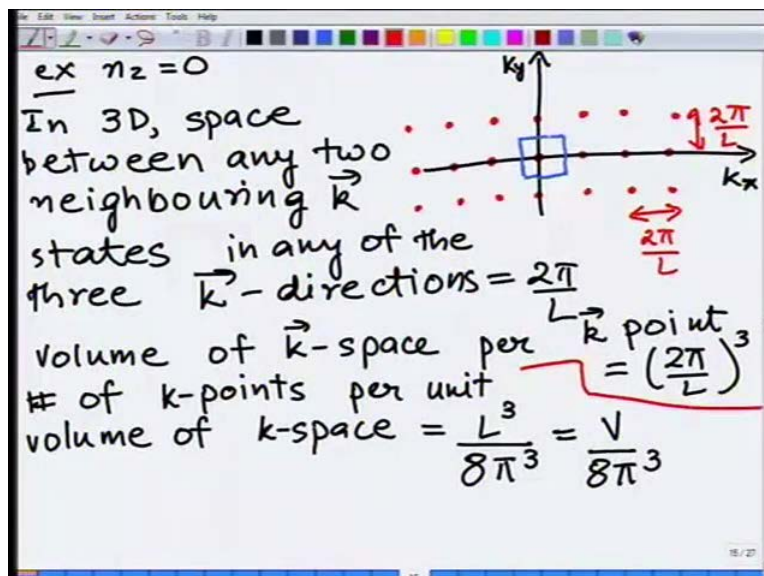 File Edit View Insert Actions Tools Help
ex n_z = 0
In 3D, space
between any two
neighbouring \vec{k}
states in any of the
three \vec{k} - directions = \frac{2π}{L}
Ky
\frac{2π}{L}
Kx
\frac{2π}{L}
volume of \vec{k}-space per \vec{k} point
= (\frac{2π}{L})^3
# of k-points per unit
volume of k-space = \frac{L^3}{8π^3} = \frac{V}{8π^3}
15 / 27